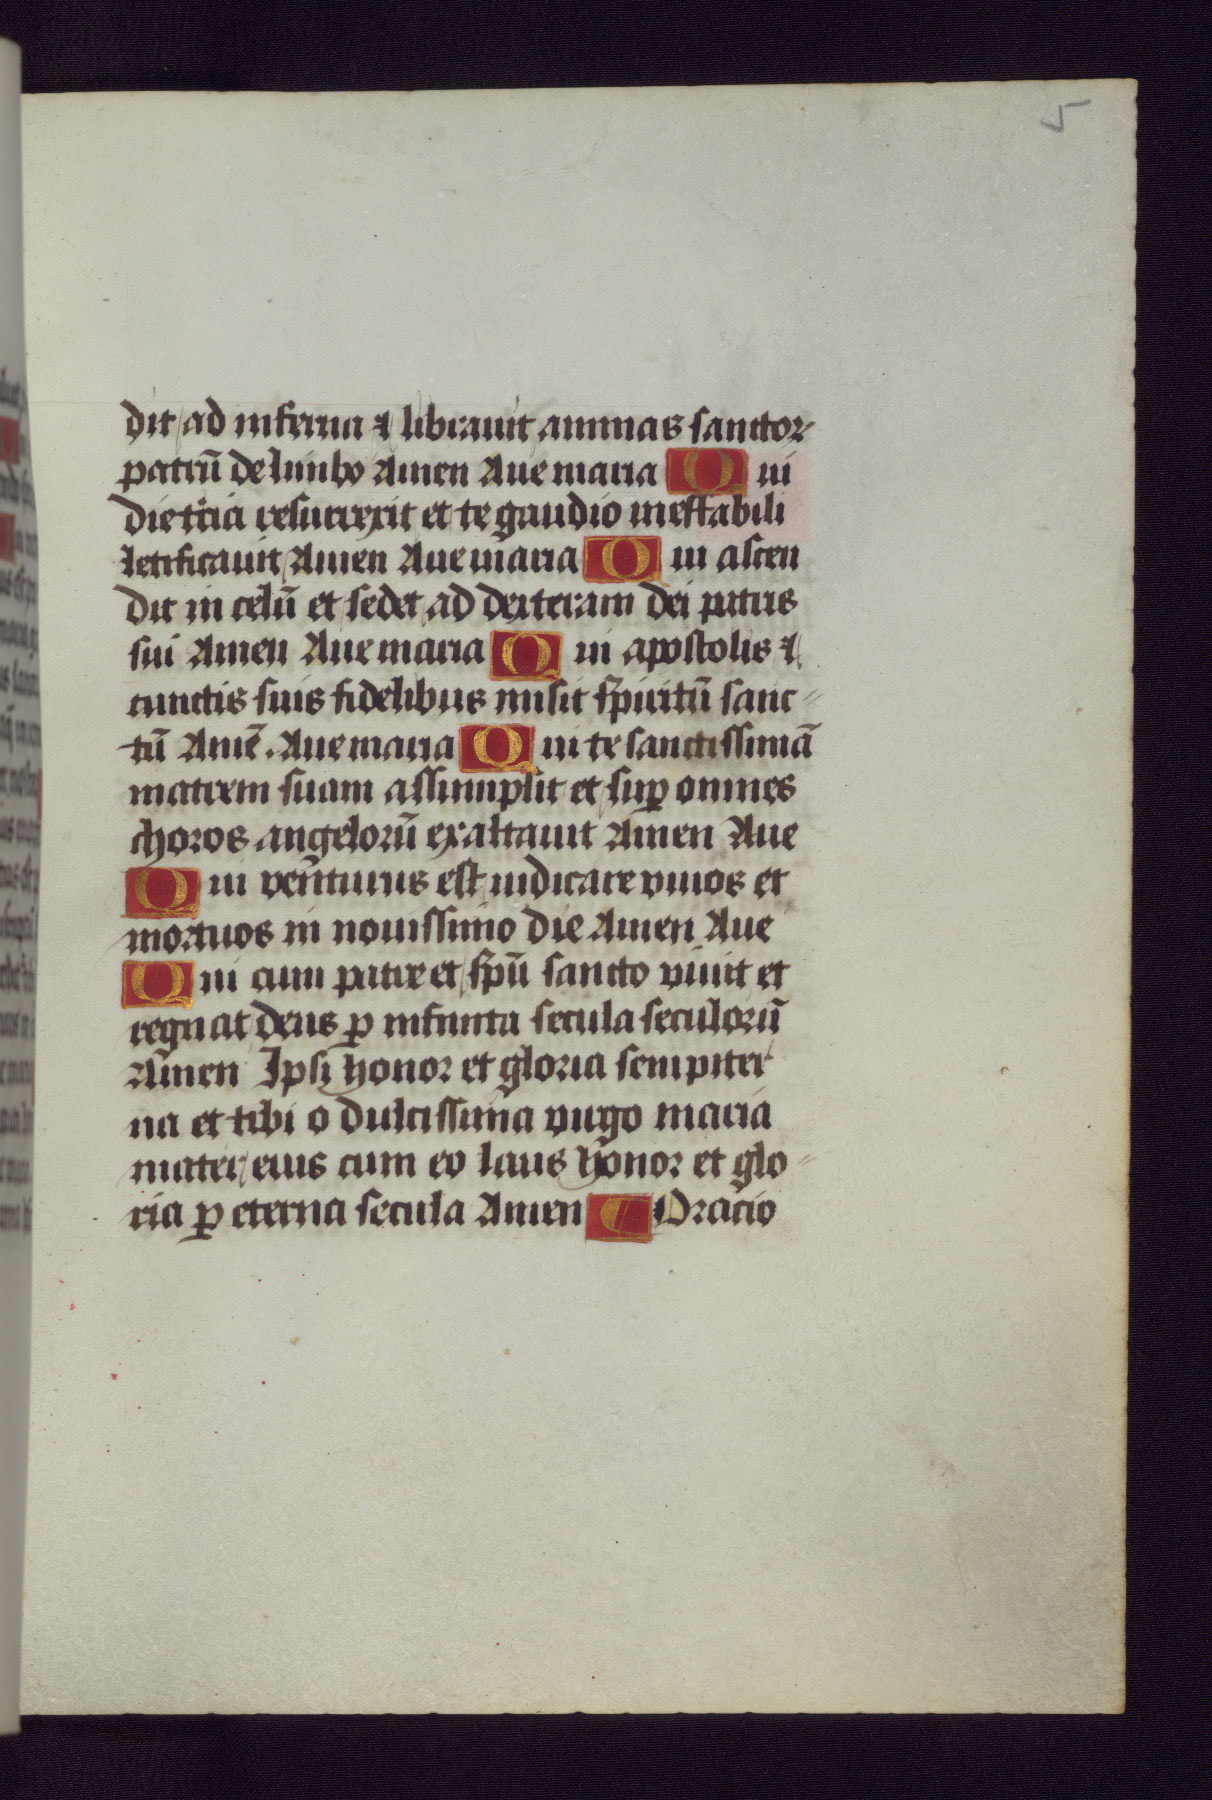 5
dit ad inferna ⁊ libravit animas sanctoꝝ
patrū de limbo Amen Ave maria Qui
die tercia resurrexit et te gaudio ineffabili
letificavit Amen Ave maria Qui ascen
dit in celū et sedet ad dexteram dei patris
sui Amen Ave maria Qui apostolis ⁊
cunctis suis fidelibus misit spiritū sanc-
tū Amē. Ave maria Qui te sanctissimā
matrem suam assumpsit et suꝑ omnes
choros angelorū exaltavit Amen Ave
Qui venturus est iudicare vivos et
mortuos in novissimo die Amen Ave
Qui cum patre et spū sancto vivit et
regnat deus ꝑ infinita secula seculorū
Amen Ipsi honor et gloria sempiter
na et tibi o dulcissima virgo maria
mater eius cum eo laus honor et glo-
ria ꝑ eterna secula Amen ¶ Oracio